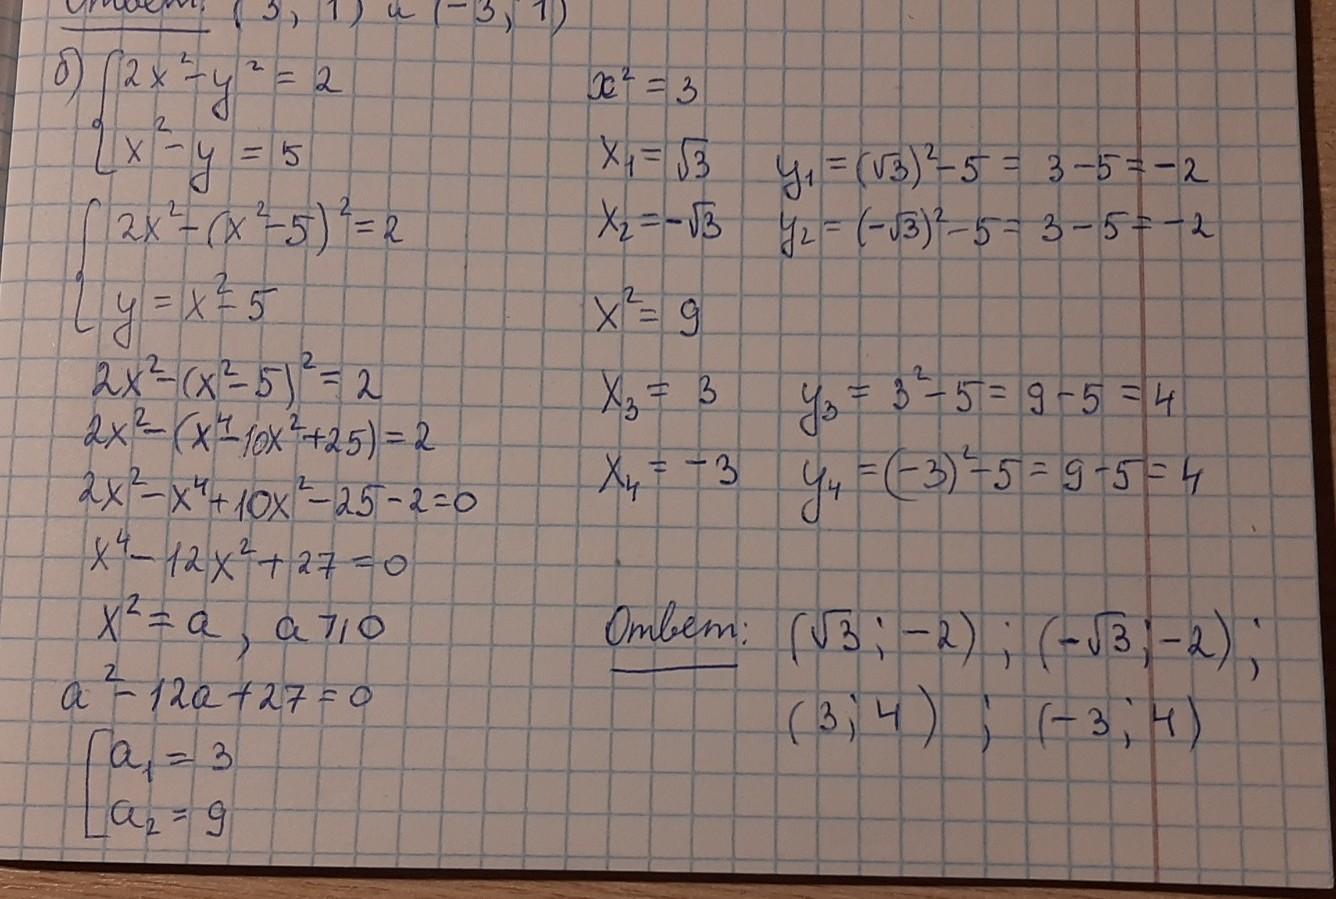 Ответ: (3, 1) и (-3, 1)
б) {2x² - y² = 2
x² - y = 5
{2x² - (x² - 5)² = 2
y = x² - 5
2x² - (x² - 5)² = 2
2x² - (x⁴ - 10x² + 25) = 2
2x² - x⁴ + 10x² - 25 - 2 = 0
x⁴ - 12x² + 27 = 0
x² = a, a ⩾ 0
a² - 12a + 27 = 0
[a₁ = 3
a₂ = 9
x² = 3
x₁ = √3 y₁ = (√3)² - 5 = 3 - 5 = -2
x₂ = -√3 y₂ = (-√3)² - 5 = 3 - 5 = -2
x² = 9
x₃ = 3 y₃ = 3² - 5 = 9 - 5 = 4
x₄ = -3 y₄ = (-3)² - 5 = 9 - 5 = 4
Ответ: (√3; -2); (-√3; -2);
(3; 4); (-3; 4)